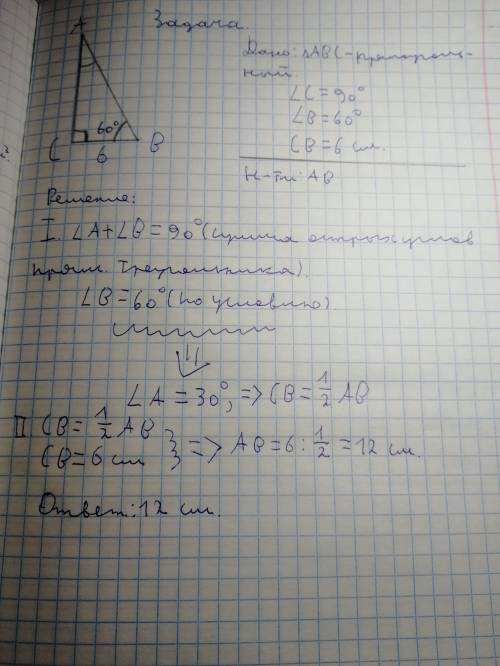 Задача.
A
60°
C 6 B
Дано: △ABC - прямоуголь-
ный.
∠C = 90°
∠B = 60°
CB = 6 см.
Н-ти: AB
Решение:
I. ∠A + ∠B = 90° (сумма острых углов
прям. треугольника).
∠B = 60° (по условию)
∠A = 30°, => CB = 1/2 AB
II CB = 1/2 AB
CB = 6 см } => AB = 6 : 1/2 = 12 см.
Ответ: 12 см.